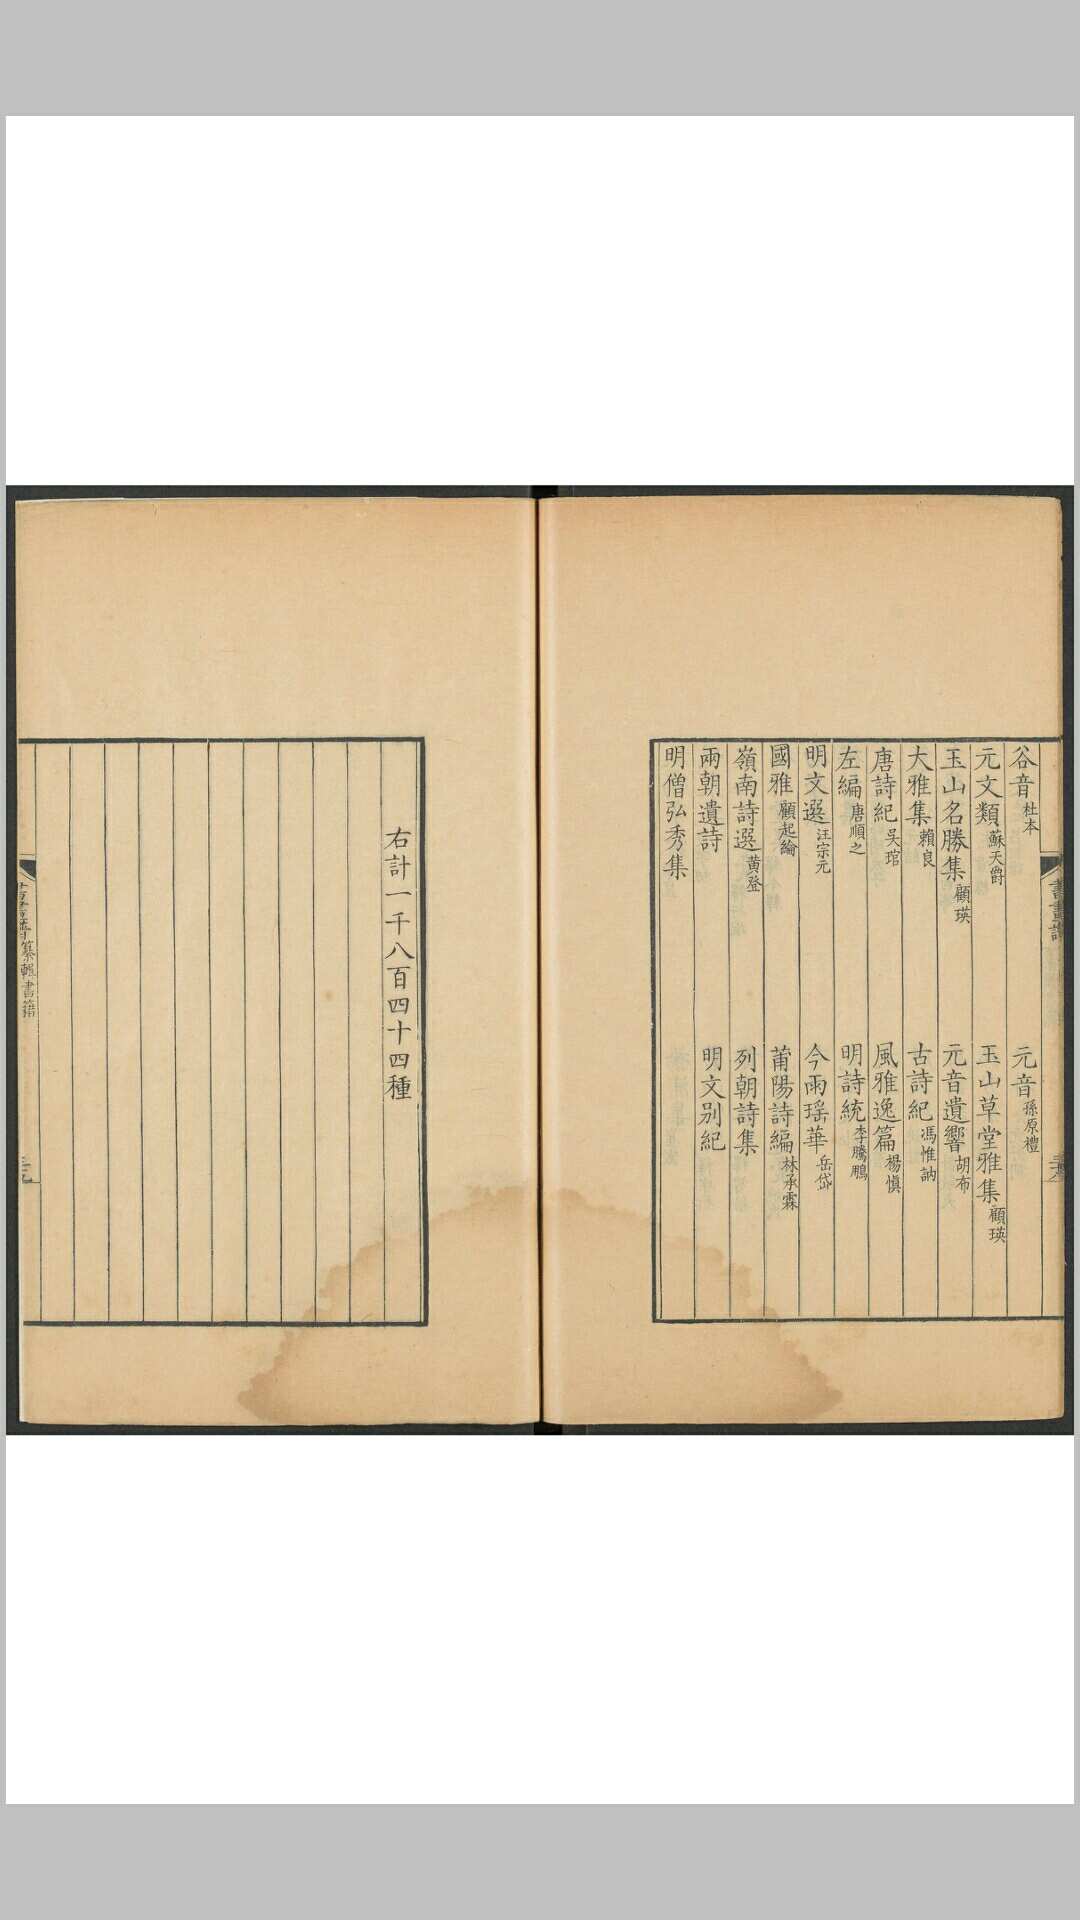 谷音 杜本 元音 孫原禮
元文類 蘇天爵 玉山草堂雅集 顧瑛
玉山名勝集 顧瑛 元音遺響 胡布
大雅集 賴良 古詩紀 馮惟訥
唐詩紀 吳琯 風雅逸篇 楊慎
左編 唐順之 明詩統 李騰鵬
明文選 汪宗元 今雨瑶華 岳岱
國雅 顧起綸 莆陽詩編 林承霖
嶺南詩選 黃登 列朝詩集
兩朝遺詩 明文别紀
明僧弘秀集
右計一千八百四十四種
纂輯書籍